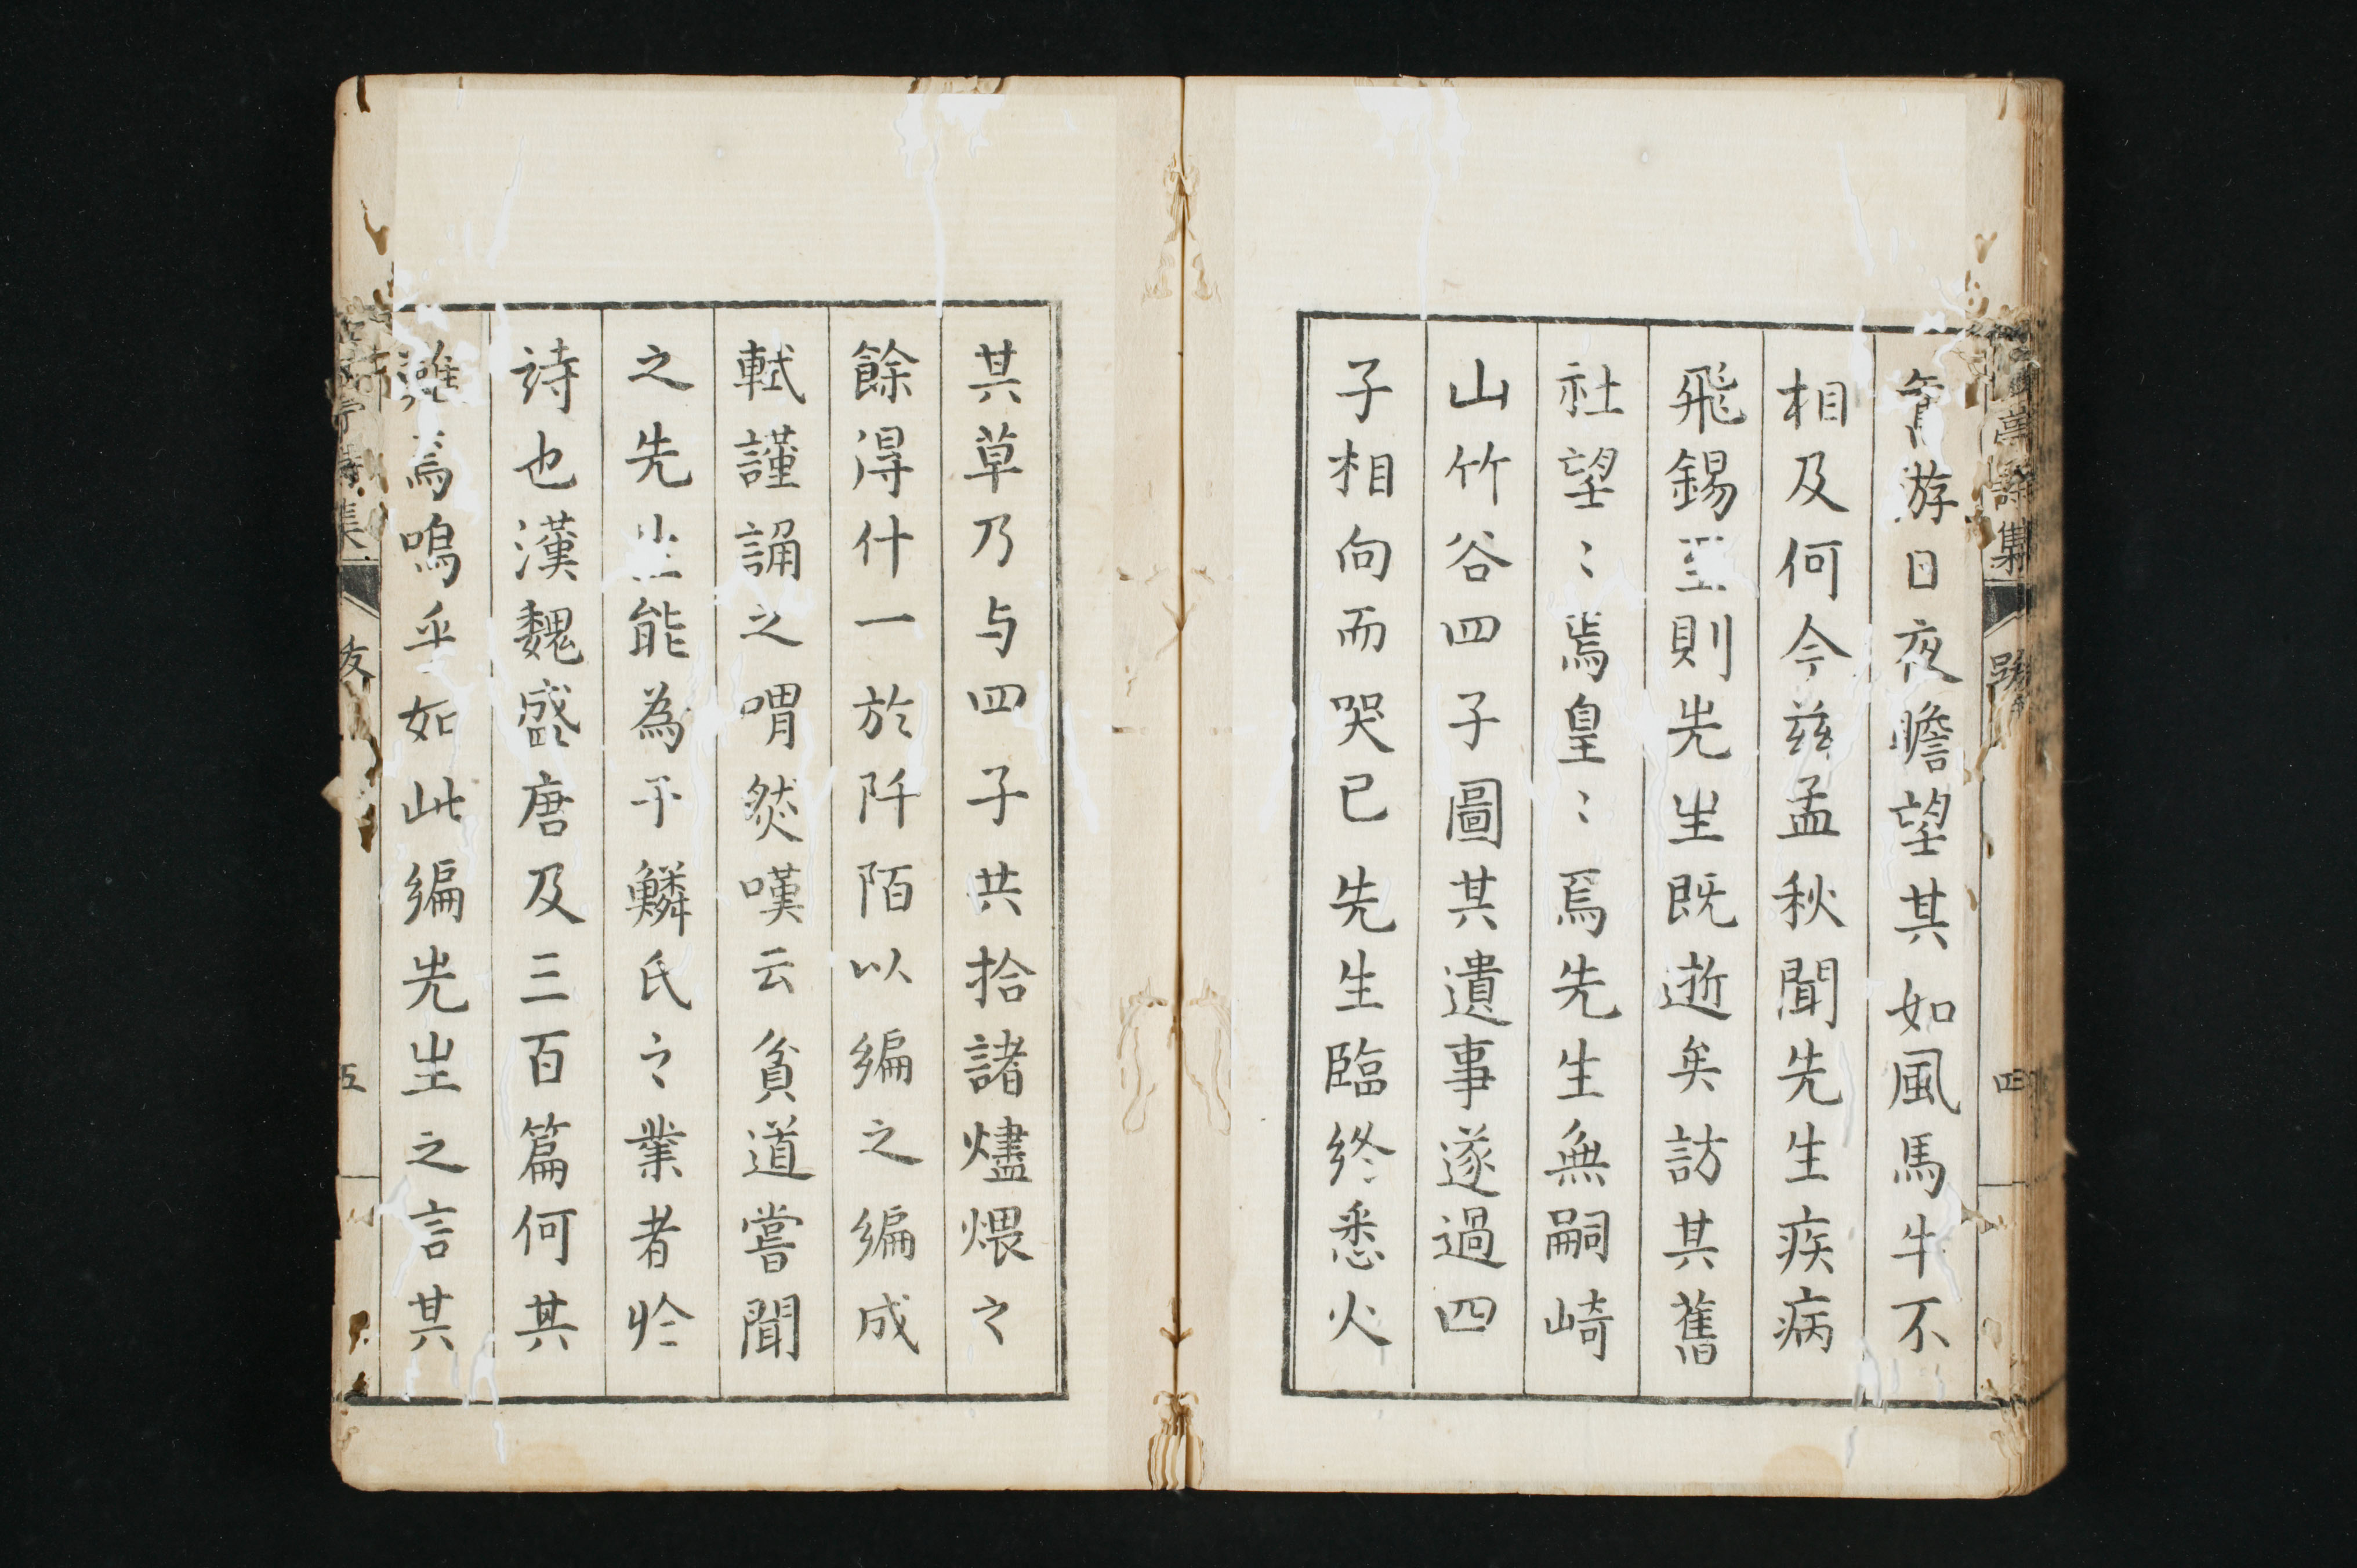 游日夜瞻望其如風馬牛不
相及何今茲孟秋聞先生疾病
飛錫至則先生既逝矣訪其舊
社望〻焉皇〻焉先生無嗣崎
山竹谷四子圖其遺事遂過四
子相向而哭已先生臨終悉火
其草乃与四子共拾諸燼煨之
餘得什一於阡陌以編之編成
軾謹誦之喟然嘆云貧道嘗聞
之先生能為平鱗氏之業者於
詩也漢魏盛唐及三百篇何其
難焉嗚乎如此編先生之言其
集
跋
四
集
五